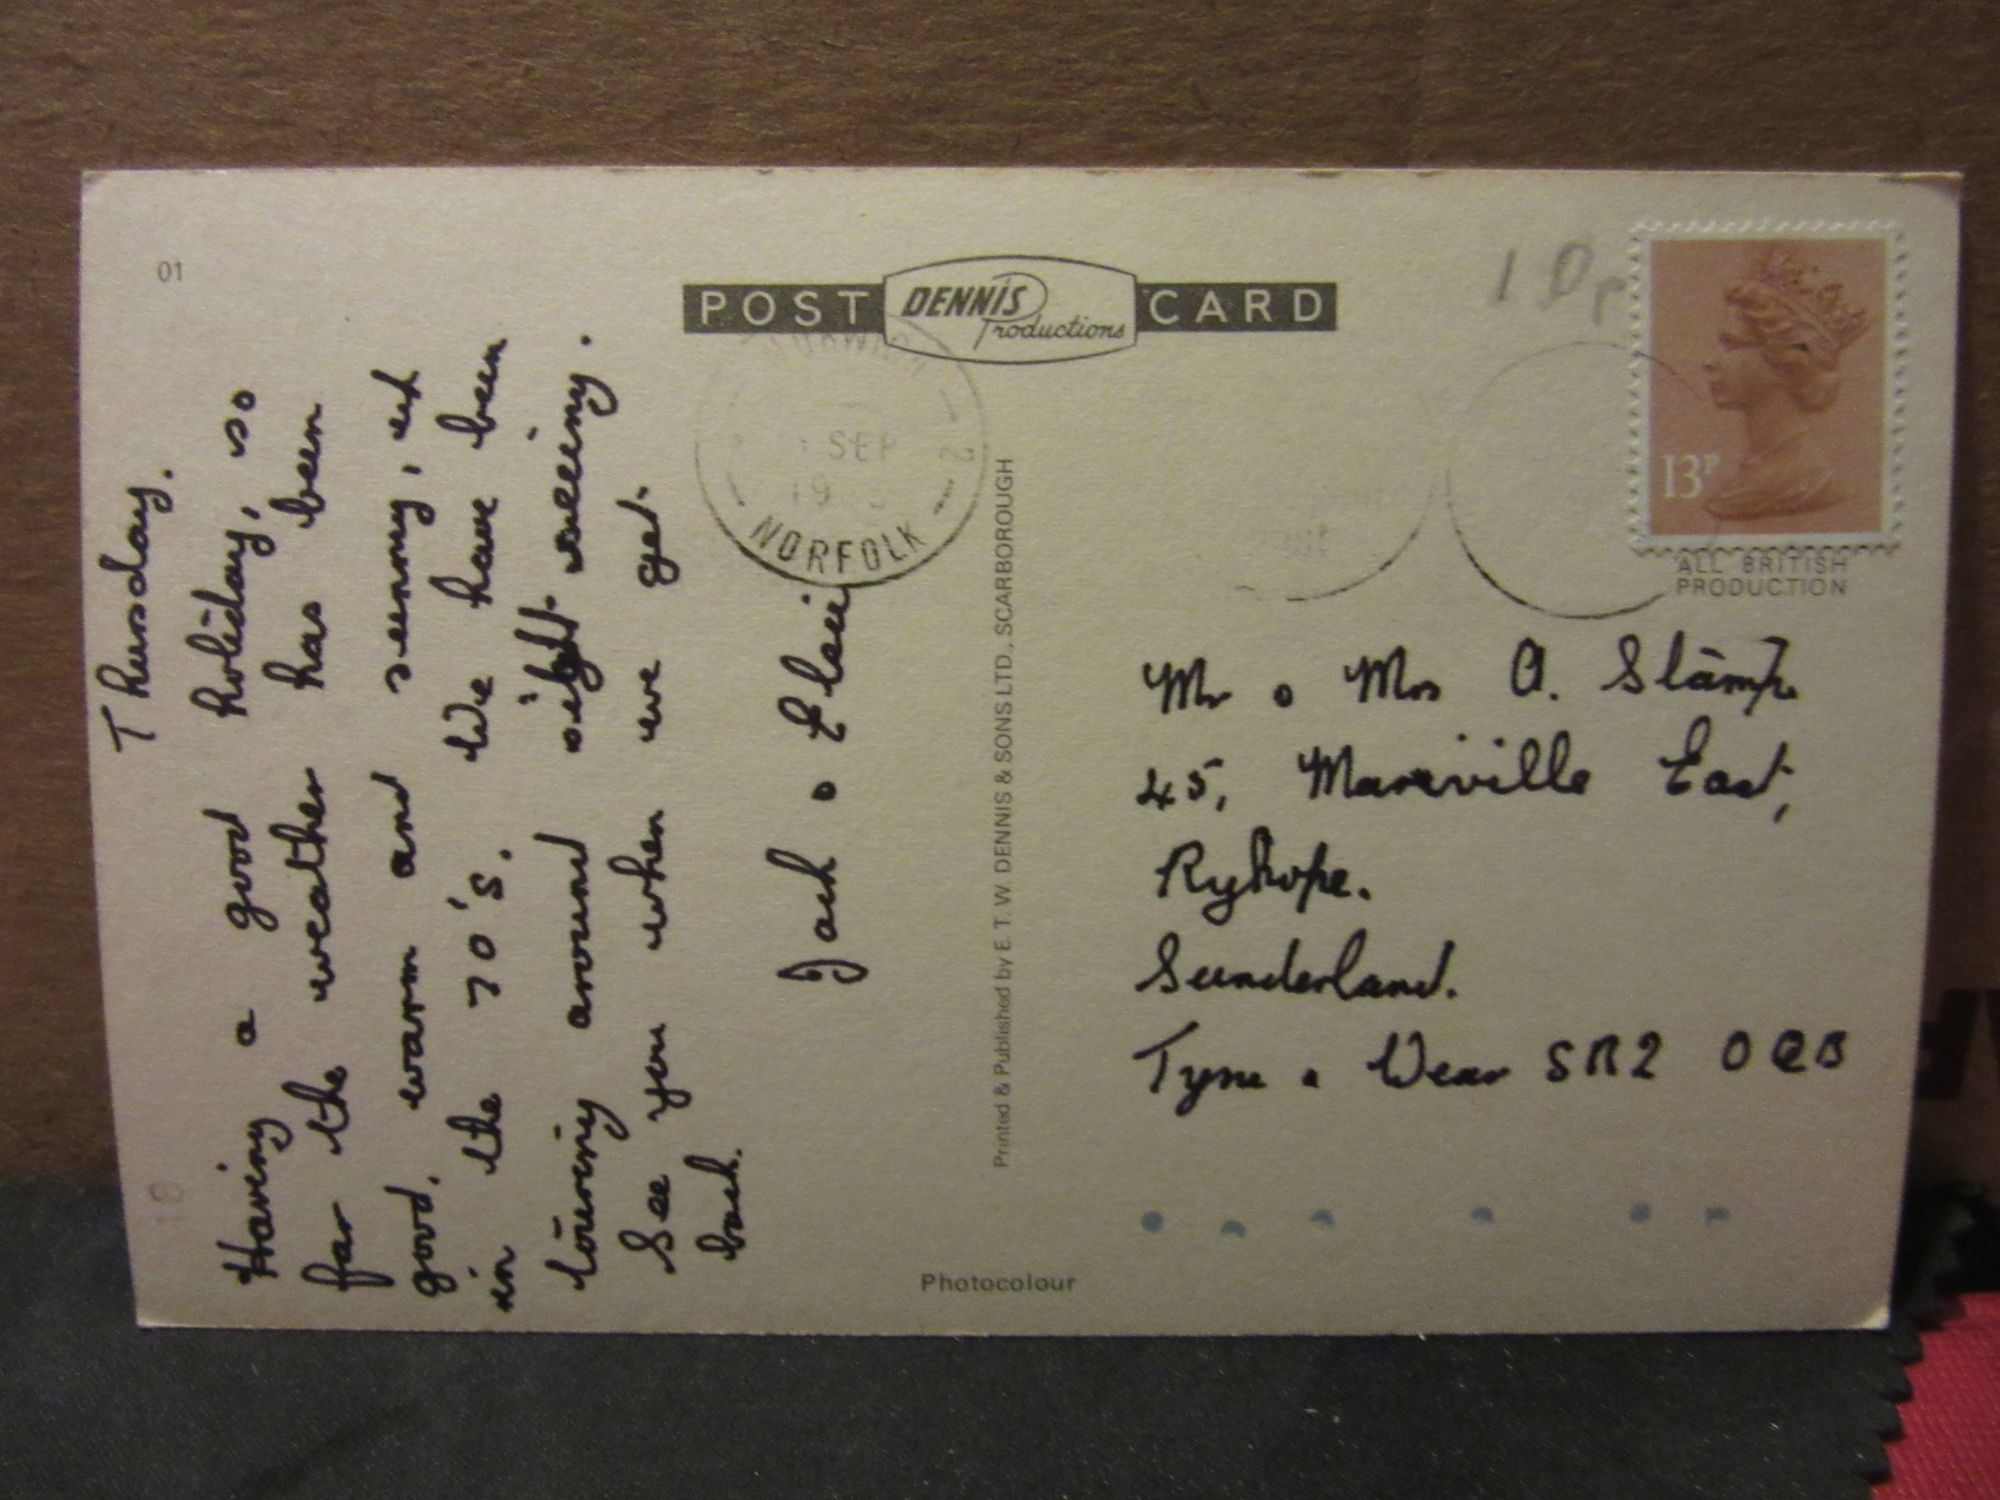 01
POST CARD
DENNIS
Productions
10p
13P
ALL BRITISH
PRODUCTION
SEP
19
NORFOLK
Thursday.
Having a good holiday, so
far the weather has been
good, warm and sunny,
in the 70's. We have been
touring around sight seeing.
See you when we get
back.
Jack &
Printed & Published by E. T. W. DENNIS & SONS LTD., SCARBOROUGH
Mr & Mrs A. Stamp
45, Mareville East,
Ryhope.
Sunderland.
Tyne & Wear SR2 0QB
18
Photocolour